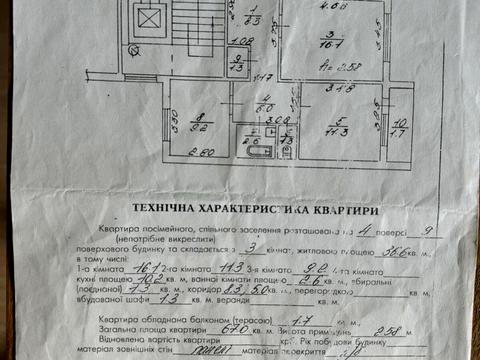 1
8.3
4.68
3
16.1
3.45
h = 2.58
1.08
9
1.3
1.17
8
9.2
3.30
2.80
4
5.0
3.08
2.6
1.3
3.18
5
11.3
10
1.7
ТЕХНІЧНА ХАРАКТЕРИСТИКА КВАРТИРИ
Квартира посімейного, спільного заселення розташована на 4 поверсі 9
(непотрібне викреслити)
поверхового будинку та складається з 3 кімнат, житловою площею 36.6 кв. м.,
в тому числі:
1-а кімната 16.1 2-га кімната 11.3 3-я кімната 9.2 кімната
кухні площею 10.2 кв. м, ванної кімнати площею 2.6 кв. м, вбиральні
(поєднаної) 1.3 кв. м, коридор 8.3, 5.0 кв. м., перегородкою кв. м.,
вбудованої шафи 1.3 кв. м. веранди кв. м.
Квартира обладнана балконом (терасою) 1.7 кв. м.
Загальна площа квартири 67.0 кв. м. Висота приміщень 2.58 м.
Відновлена вартість квартири крб. Рік побудови будинку
матеріал зовнішніх стін панелі матеріал перекриття